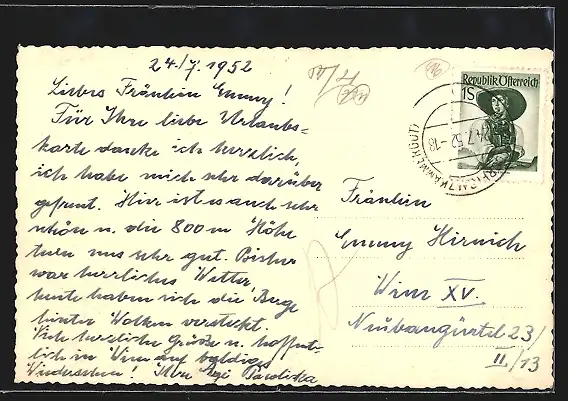 24./7. 1952
Liebes Fräulein Emmy!
Für Ihre liebe Urlaubs-
karte danke ich herzlich,
ich habe mich sehr darüber
gefreut. Hier ist es auch sehr
schön u. die 800 m Höhe
tuen uns sehr gut. Bisher
war herrliches Wetter
heute haben sich die Berge
hinter Wolken versteckt.
Viele herzliche Grüße u. hoffent-
lich in Wien auf baldiges
Wiedersehen! Ihre
Republik Österreich
1S
Fräulein
Emmy Hirnich
Wien XV.
Neubaugürtel 23/
II/13